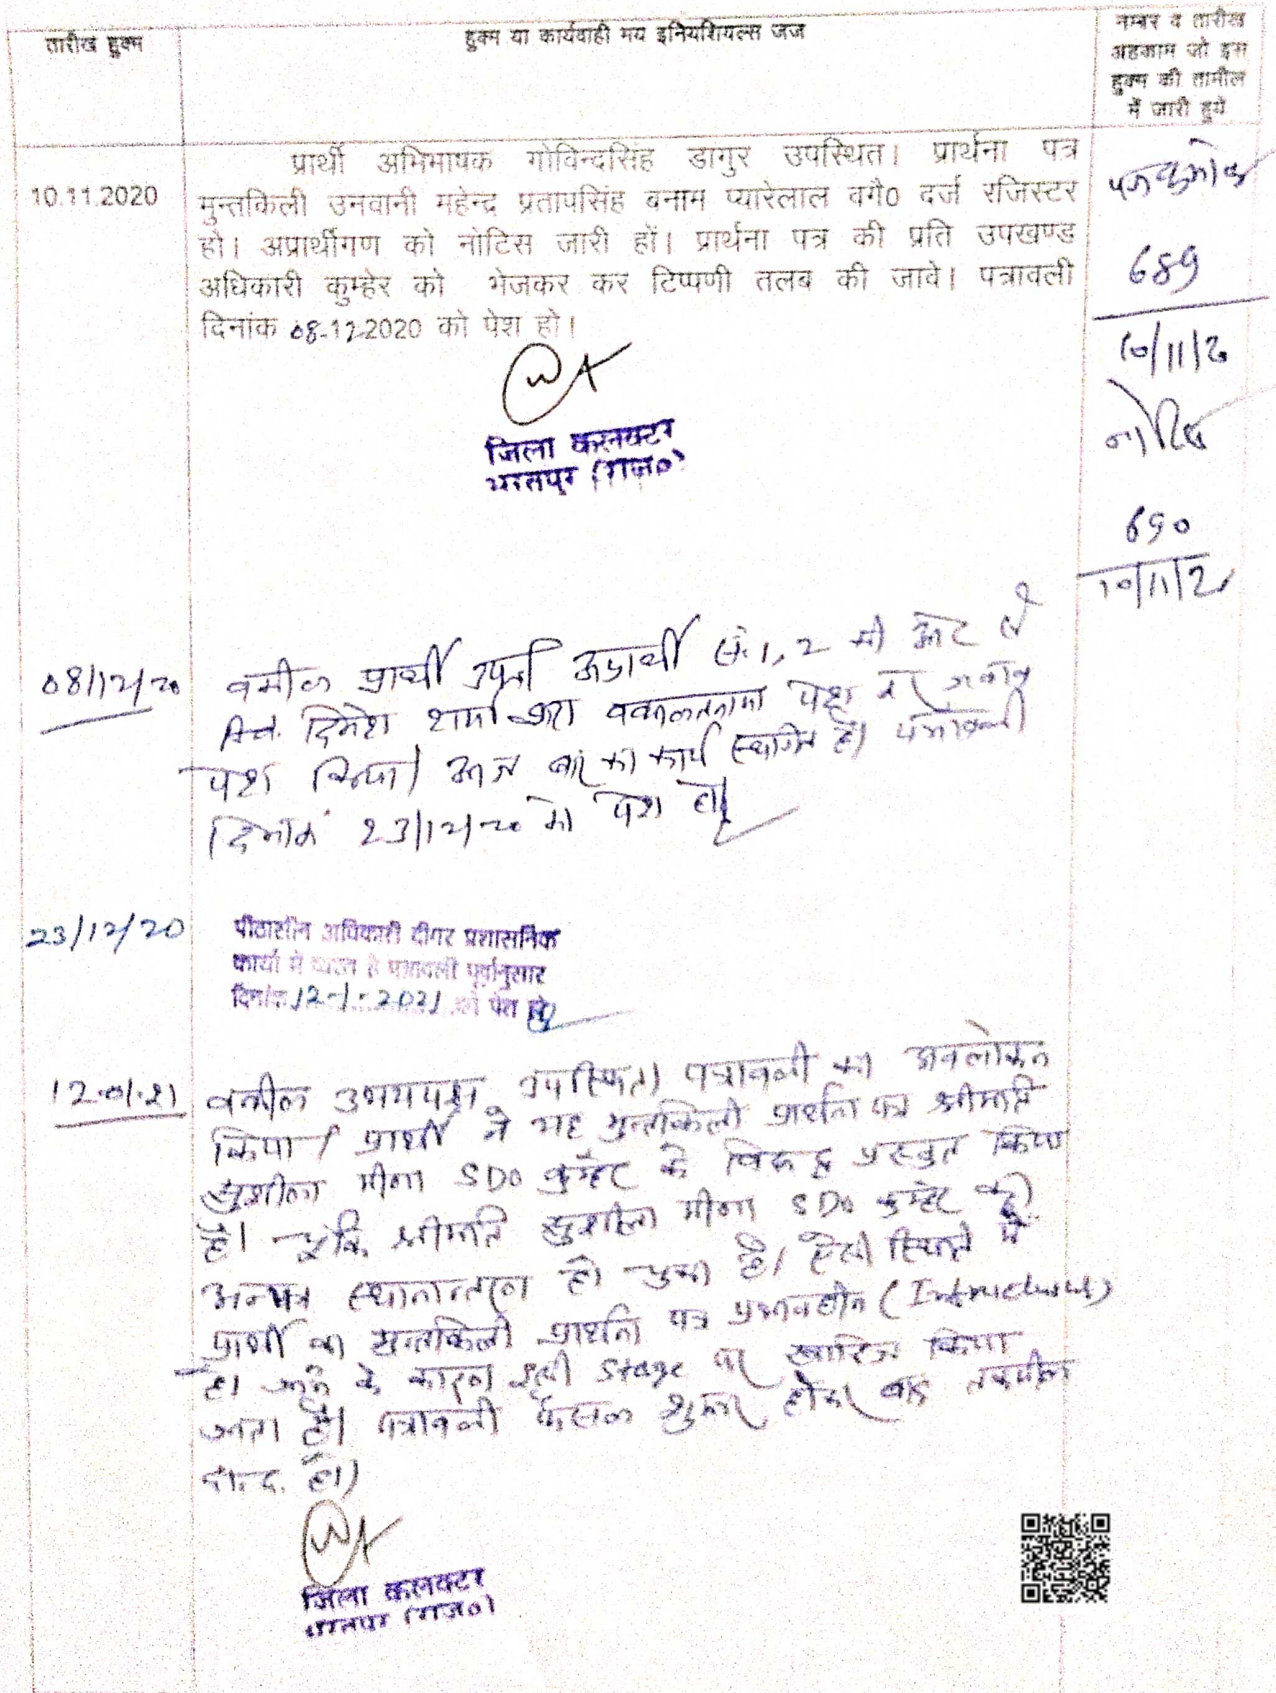 तारीख हुक्म
हुक्म या कार्यवाही मय इनियशियल्स जज
नम्बर व तारीख
अहकाम जो इस
हुक्म की तामील
में जारी हुये
10.11.2020
प्रार्थी अभिभाषक गोविन्दसिंह डागुर उपस्थित। प्रार्थना पत्र
मुन्तकिली उनवानी महेन्द्र प्रतापसिंह बनाम प्यारेलाल वगै0 दर्ज रजिस्टर
हो। अप्रार्थीगण को नोटिस जारी हों। प्रार्थना पत्र की प्रति उपखण्ड
अधिकारी कुम्हेर को भेजकर कर टिप्पणी तलब की जावे। पत्रावली
दिनांक 08-12-2020 को पेश हो।
जिला कलक्टर
भरतपुर (राज०)
689
10/11/20
नोटिस
690
10/11/20
08/12/20
वकील प्रार्थी उप० अप्रार्थी सं. 1, 2 की ओर से
Adv. दिनेश शर्मा द्वारा वकालतनामा पेश कर जवाब
पेश किया। आज बार का कार्य स्थगित है। पत्रावली
दिनांक 23/12/20 को पेश हो।
23/12/20
पीठासीन अधिकारी दीगर प्रशासनिक
कार्यो में व्यस्त है पत्रावली पूर्वानुसार
दिनांक 12-1-2021 को पेश हो
12.01.21
वकील उभयपक्ष उपस्थित। पत्रावली का अवलोकन
किया। प्रार्थी ने यह मुन्तकिली प्रार्थना पत्र श्रीमति
सुशीला मीना SDO कुम्हेर के विरूद्ध प्रस्तुत किया
है। चूंकि श्रीमति सुशीला मीना SDO कुम्हेर का
अन्यत्र स्थानान्तरण हो चुका है। ऐसी स्थिति में
प्रार्थी का मुन्तकिली प्रार्थना पत्र प्रभावहीन
हो जाने के कारण इसी stage पर खारिज किया
जाता है। पत्रावली फैसल शुमार होकर बाद तकमील
दा.द. हो।
जिला कलक्टर
भरतपुर (राज०)